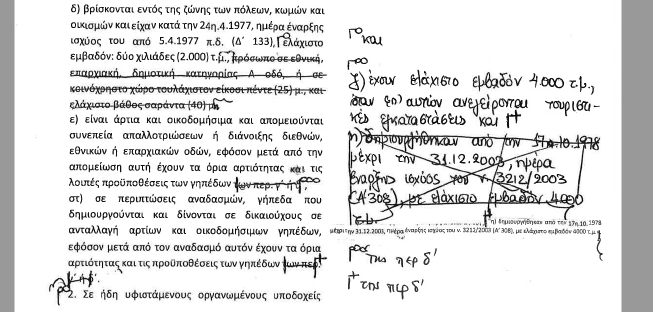 δ) βρίσκονται εντός της ζώνης των πόλεων, κωμών και
οικισμών και είχαν κατά την 24η.4.1977, ημέρα έναρξης
ισχύος του από 5.4.1977 π.δ. (Δ΄ 133), ελάχιστο
εμβαδόν: δύο χιλιάδες (2.000) τ.μ., πρόσωπο σε εθνική,
επαρχιακή, δημοτική κατηγορίας Α οδό, ή σε
κοινόχρηστο χώρο τουλάχιστον είκοσι πέντε (25) μ., και
ελάχιστο βάθος σαράντα (40) μ.
ε) είναι άρτια και οικοδομήσιμα και απομειούνται
συνεπεία απαλλοτριώσεων ή διάνοιξης διεθνών,
εθνικών ή επαρχιακών οδών, εφόσον μετά από την
απομείωση αυτή έχουν τα όρια αρτιότητας και τις
λοιπές προϋποθέσεις των γηπέδων των περ. γ΄ ή
στ) σε περιπτώσεις αναδασμών, γήπεδα που
δημιουργούνται και δίνονται σε δικαιούχους σε
ανταλλαγή αρτίων και οικοδομήσιμων γηπέδων,
εφόσον μετά από τον αναδασμό αυτόν έχουν τα όρια
αρτιότητας και τις προϋποθέσεις των γηπέδων των περ.
2. Σε ήδη υφιστάμενους οργανωμένους υποδοχείς
και
ζ) έχουν ελάχιστο εμβαδόν 4.000 τ.μ.,
όταν επ' αυτών ανεγείρονται τουριστι-
κές εγκαταστάσεις και
η) δημιουργήθηκαν από την 17η.10.1978
μέχρι την 31.12.2003, ημέρα
έναρξης ισχύος του ν. 3212/2003
(Α'308), με ελάχιστο εμβαδόν 4000
τ.μ.
η) δημιουργήθηκαν από την 17η.10.1978
μέχρι την 31.12.2003, ημέρα έναρξης ισχύος του ν. 3212/2003 (Α΄ 308), με ελάχιστο εμβαδόν 4000 τ.μ.
της περ δ'
της περ δ'